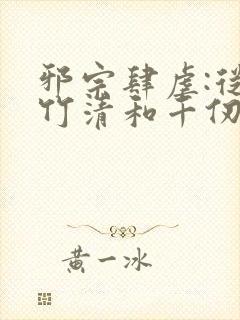 邪宗肆虐:從
竹清和千仞
黃一冰